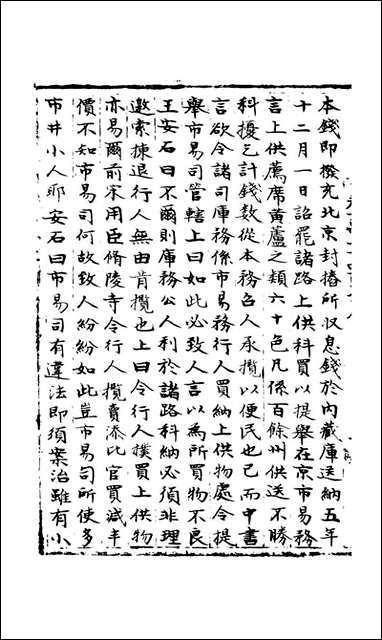 本錢即撥充北京封樁所収息錢於內藏庫送納五年
十二月一日詔罷諸路上供科買以提舉在京市易務
言上供薦席黃蘆之類六十色凡係百餘州供送不勝
科擾乞計錢數從本務召人承攬以便民也已而中書
言欲令諸司庫務係市易務行人買納上供物處令提
舉市易司管轄上曰如此必致人言以為所買物不良
王安石曰不爾則庫務公人利於諸路科納必須非理
邀索揀退行人無由肯攬也上曰令行人撲買上供物
亦易爾前宋用臣脩陵寺令行人攬賣漆比官買減半
價不知市易司何故致人紛紛如此豈市易司所使多
市井小人耶安石曰市易司有違法即須案治雖有小